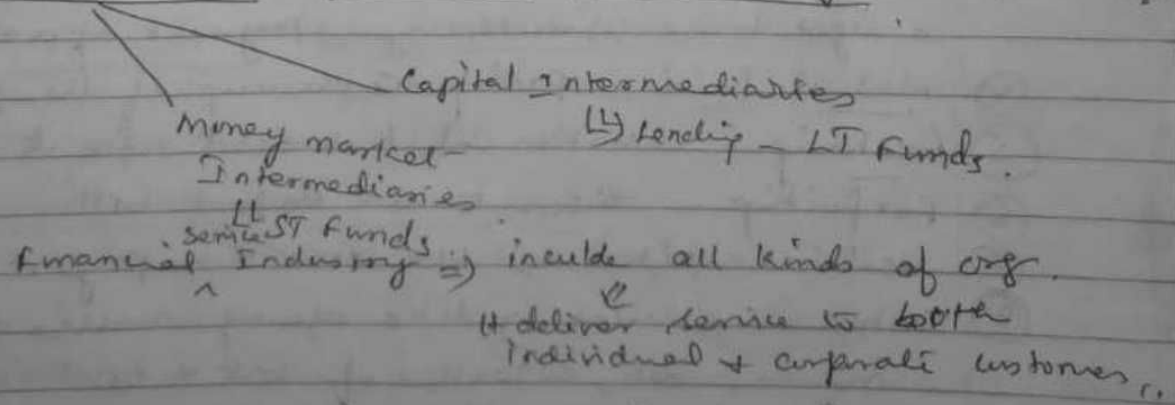 Capital Intermediaries
↳ Lending - LT Funds.
Money market
Intermediaries
↳ ST Funds
Financial ^ service Industry => inculde all kinds of org.
↳ deliver service to both
individual + corporate customers,,